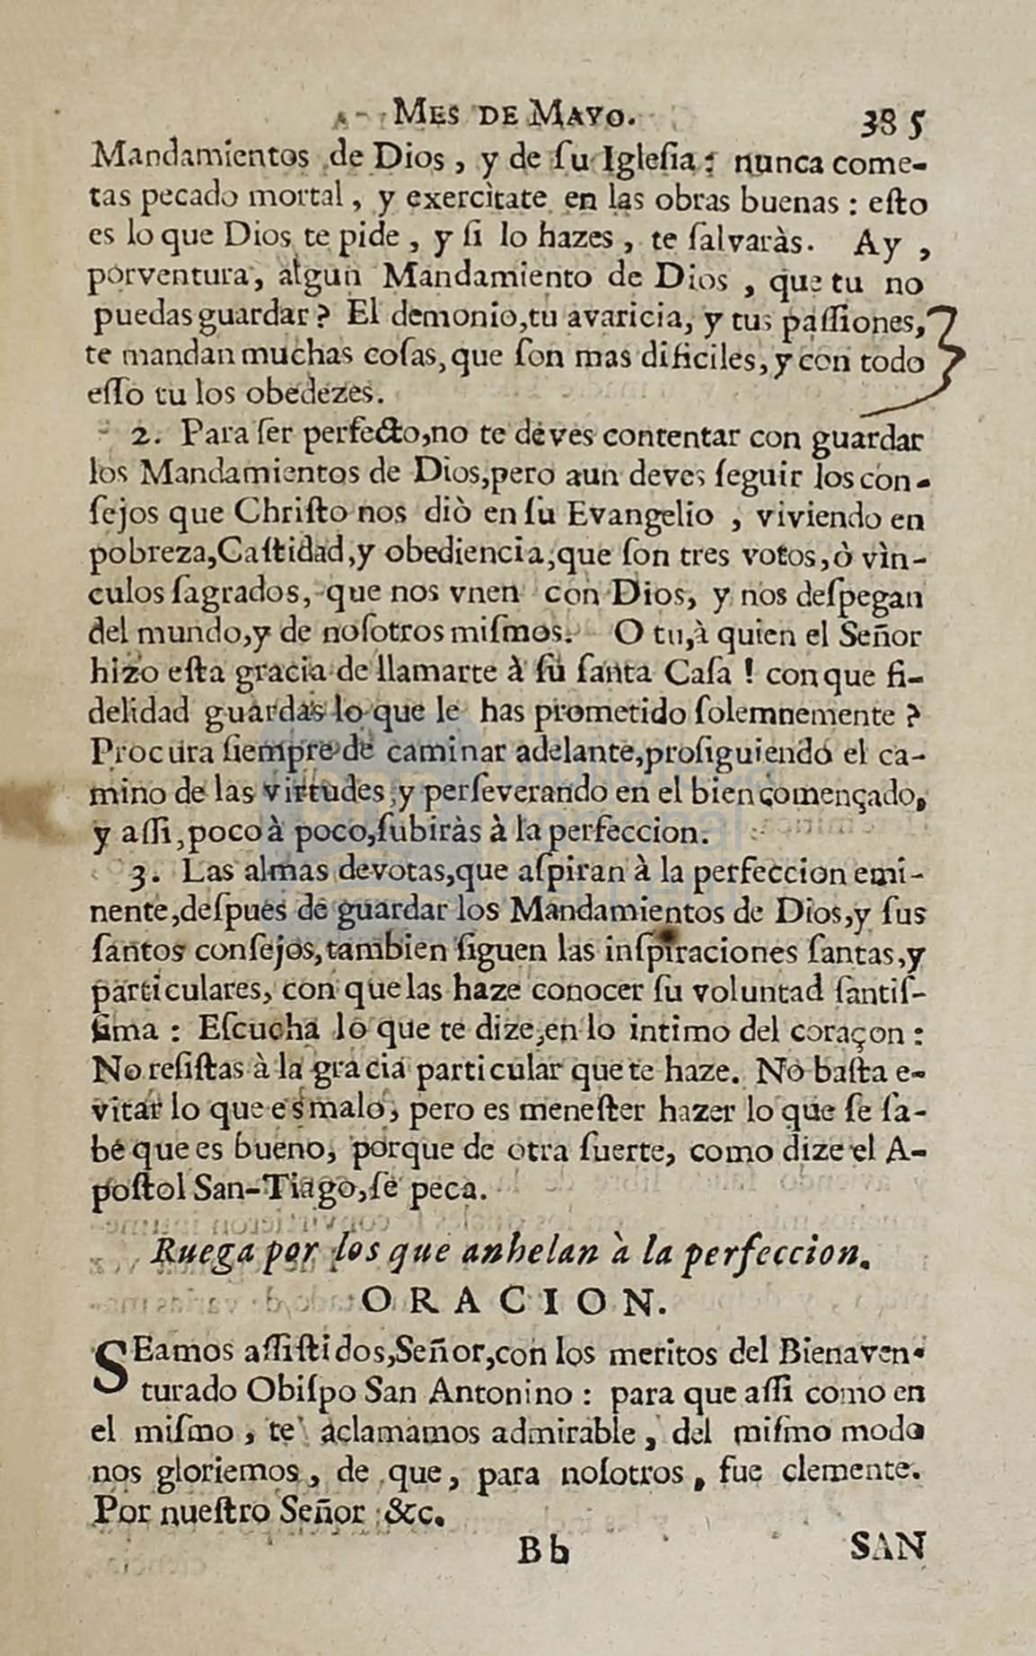 MES DE MAYO. 385
Mandamientos de Dios, y de ſu Igleſia: nunca come-
tas pecado mortal, y exercìtate en las obras buenas: eſto
es lo que Dios te pide, y ſi lo hazes, te ſalvaràs. Ay,
porventura, algun Mandamiento de Dios, que tu no
puedas guardar? El demonio,tu avaricia, y tus paſſiones,
te mandan muchas coſas, que ſon mas dificiles, y con todo
eſſo tu los obedezes.
2. Para ſer perfecto,no te deves contentar con guardar
los Mandamientos de Dios,pero aun deves ſeguir los con-
ſejos que Chriſto nos diò en ſu Evangelio, viviendo en
pobreza,Caſtidad,y obediencia,que ſon tres votos,ò vìn-
culos ſagrados, que nos vnen con Dios, y nos deſpegan
del mundo,y de noſotros miſmos. O tu,à quien el Señor
hizo eſta gracia de llamarte à ſu ſanta Caſa! con que fi-
delidad guardas lo que le has prometido ſolemnemente?
Procura ſiempre de caminar adelante,proſiguiendo el ca-
mino de las virtudes,y perſeverando en el bien començado,
y aſſi,poco à poco,ſubiràs à la perfeccion.
3. Las almas devotas,que aſpiran à la perfeccion emi-
nente,deſpues de guardar los Mandamientos de Dios,y ſus
ſantos conſejos,tambien ſiguen las inſpiraciones ſantas,y
particulares, con que las haze conocer ſu voluntad ſantiſ-
ſima: Eſcucha lo que te dize,en lo intimo del coraçon:
No reſiſtas à la gracia particular que te haze. No baſta e-
vitar lo que es malo, pero es meneſter hazer lo que ſe ſa-
be que es bueno, porque de otra ſuerte, como dize el A-
poſtol San-Tiago,ſe peca.
Ruega por los que anhelan à la perfeccion.
ORACION.
SEamos aſſiſtidos,Señor,con los meritos del Bienaven-
turado Obiſpo San Antonino: para que aſſi como en
el miſmo, te aclamamos admirable, del miſmo modo
nos gloriemos, de que, para noſotros, fue clemente.
Por nueſtro Señor &c.
Bb SAN